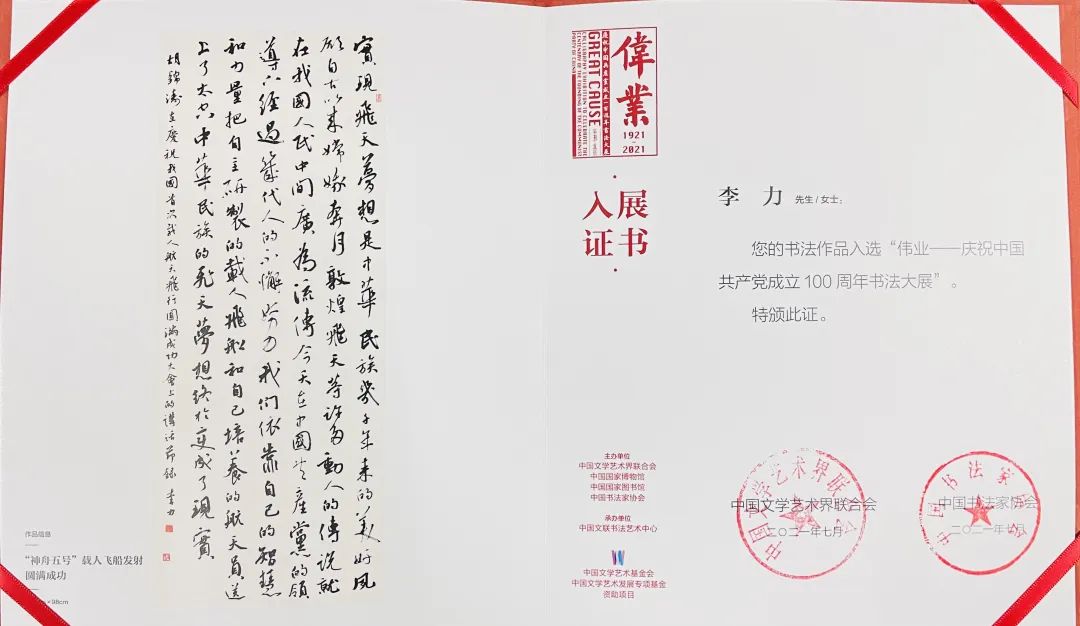 實現飛天夢想是中華民族幾千年來的美好夙
願自古以來嫦娥奔月敦煌飛天等許多動人的傳說就
在我國人民中間廣為流傳今天在中國共產黨的領
導下經過幾代人的不懈努力我們依靠自己的智慧
和力量把自主研製的載人飛船和自己培養的航天員送
上了太空中華民族的飛天夢想終於變成了現實
胡錦濤在慶祝我國首次載人航天飛行圓滿成功大會上的講話節錄 李力
作品信息
“神舟五号”载人飞船发射
圆满成功
×98cm
偉業
1921
-
2021
慶祝中國共產黨成立一百周年書法大展
GREAT CAUSE
CALLIGRAPHY EXHIBITION TO CELEBRATE THE
CENTENARY OF THE FOUNDING OF THE COMMUNIST
PARTY OF CHINA
入展
证书
李 力 先生/女士：
您的书法作品入选“伟业——庆祝中国
共产党成立100周年书法大展”。
特颁此证。
主办单位
中国文学艺术界联合会
中国国家博物馆
中国国家图书馆
中国书法家协会
承办单位
中国文联书法艺术中心
中国文学艺术基金会
中国文学艺术发展专项基金
资助项目
中国文学艺术界联合会
二〇二一年七月
中国文学艺术界联合会
中国书法家协会
二〇二一年七月
中国书法家协会